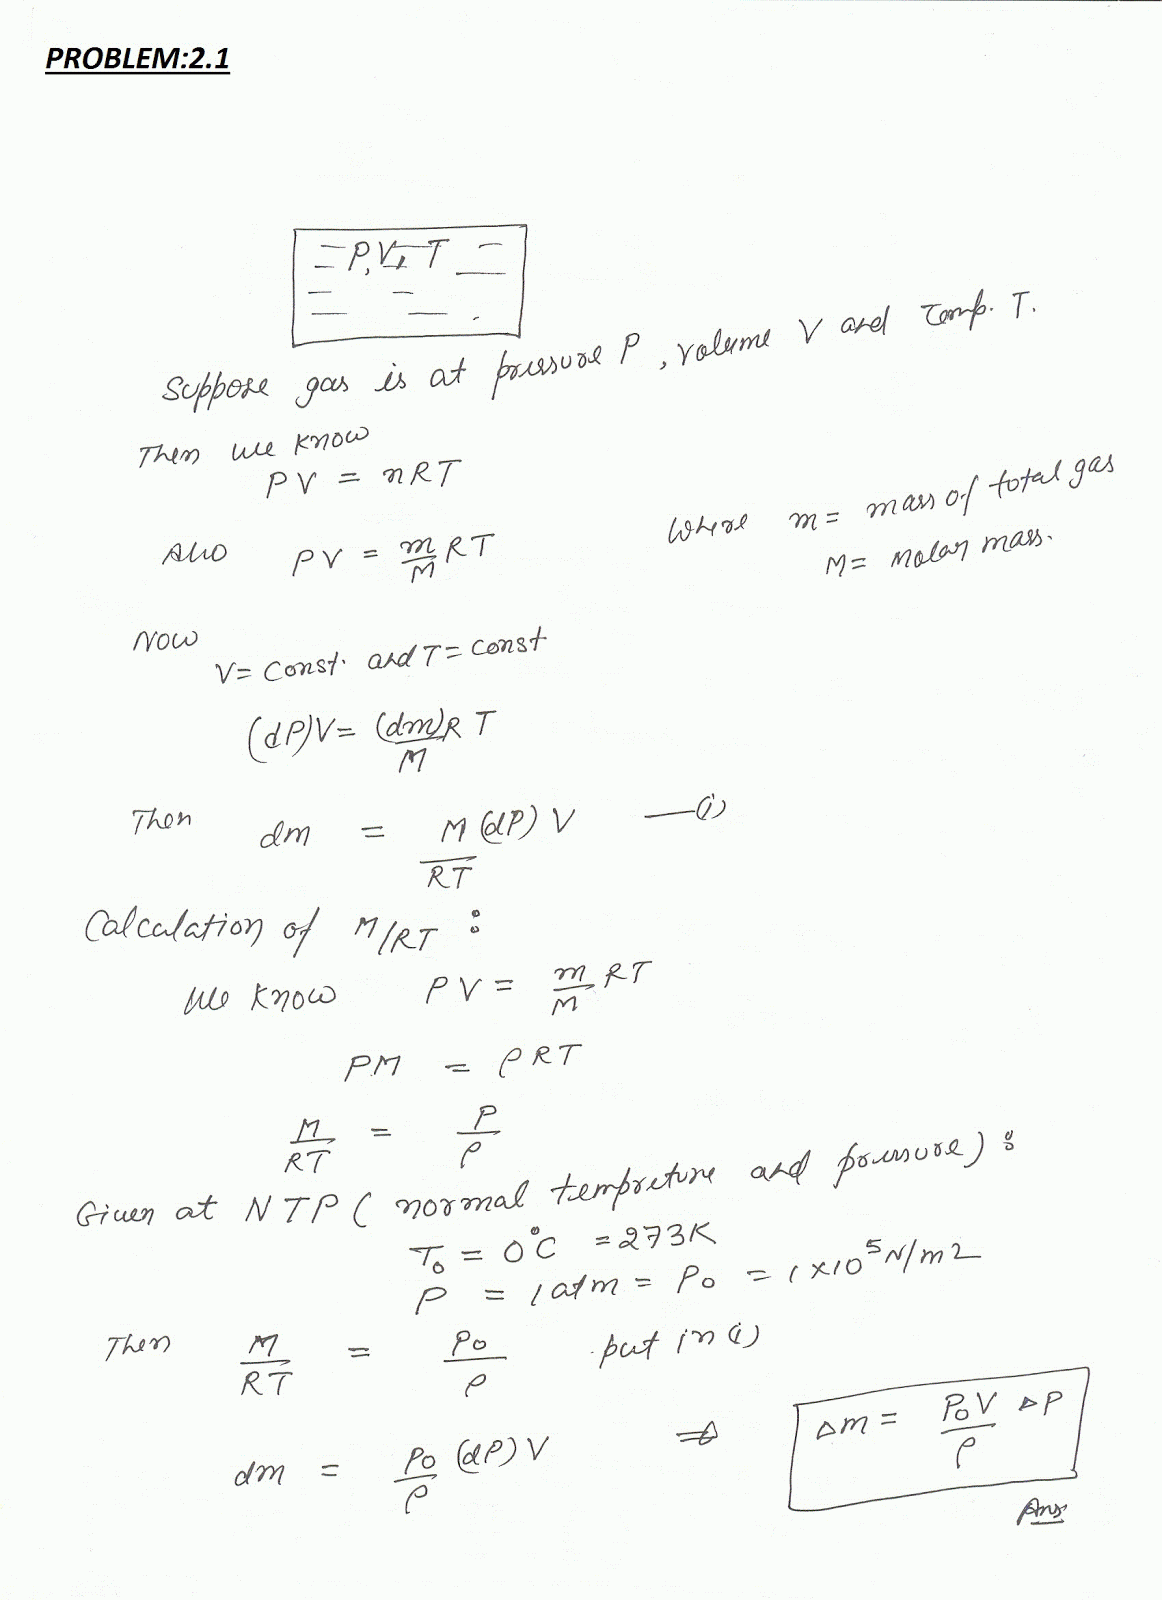 PROBLEM:2.1
P, V, T
Suppose gas is at pressure P, volume V and Temp. T.
Then we know
PV = nRT
Also PV = m/M RT where m = mass of total gas
M = Molar mass.
Now
V = Const. and T = Const
(dP)V = (dm)/M R T
Then dm = M (dP) V / RT —(i)
Calculation of M/RT :
We know PV = m/M RT
PM = ρRT
M/RT = P/ρ
Given at NTP ( normal tempreture and pressure) :
T₀ = 0°C = 273K
P = 1 atm = P₀ = 1 × 10⁵ N/m2
Then M/RT = P₀/ρ put in (i)
dm = P₀/ρ (dP) V ⇒ Δm = P₀V/ρ ΔP
Ans